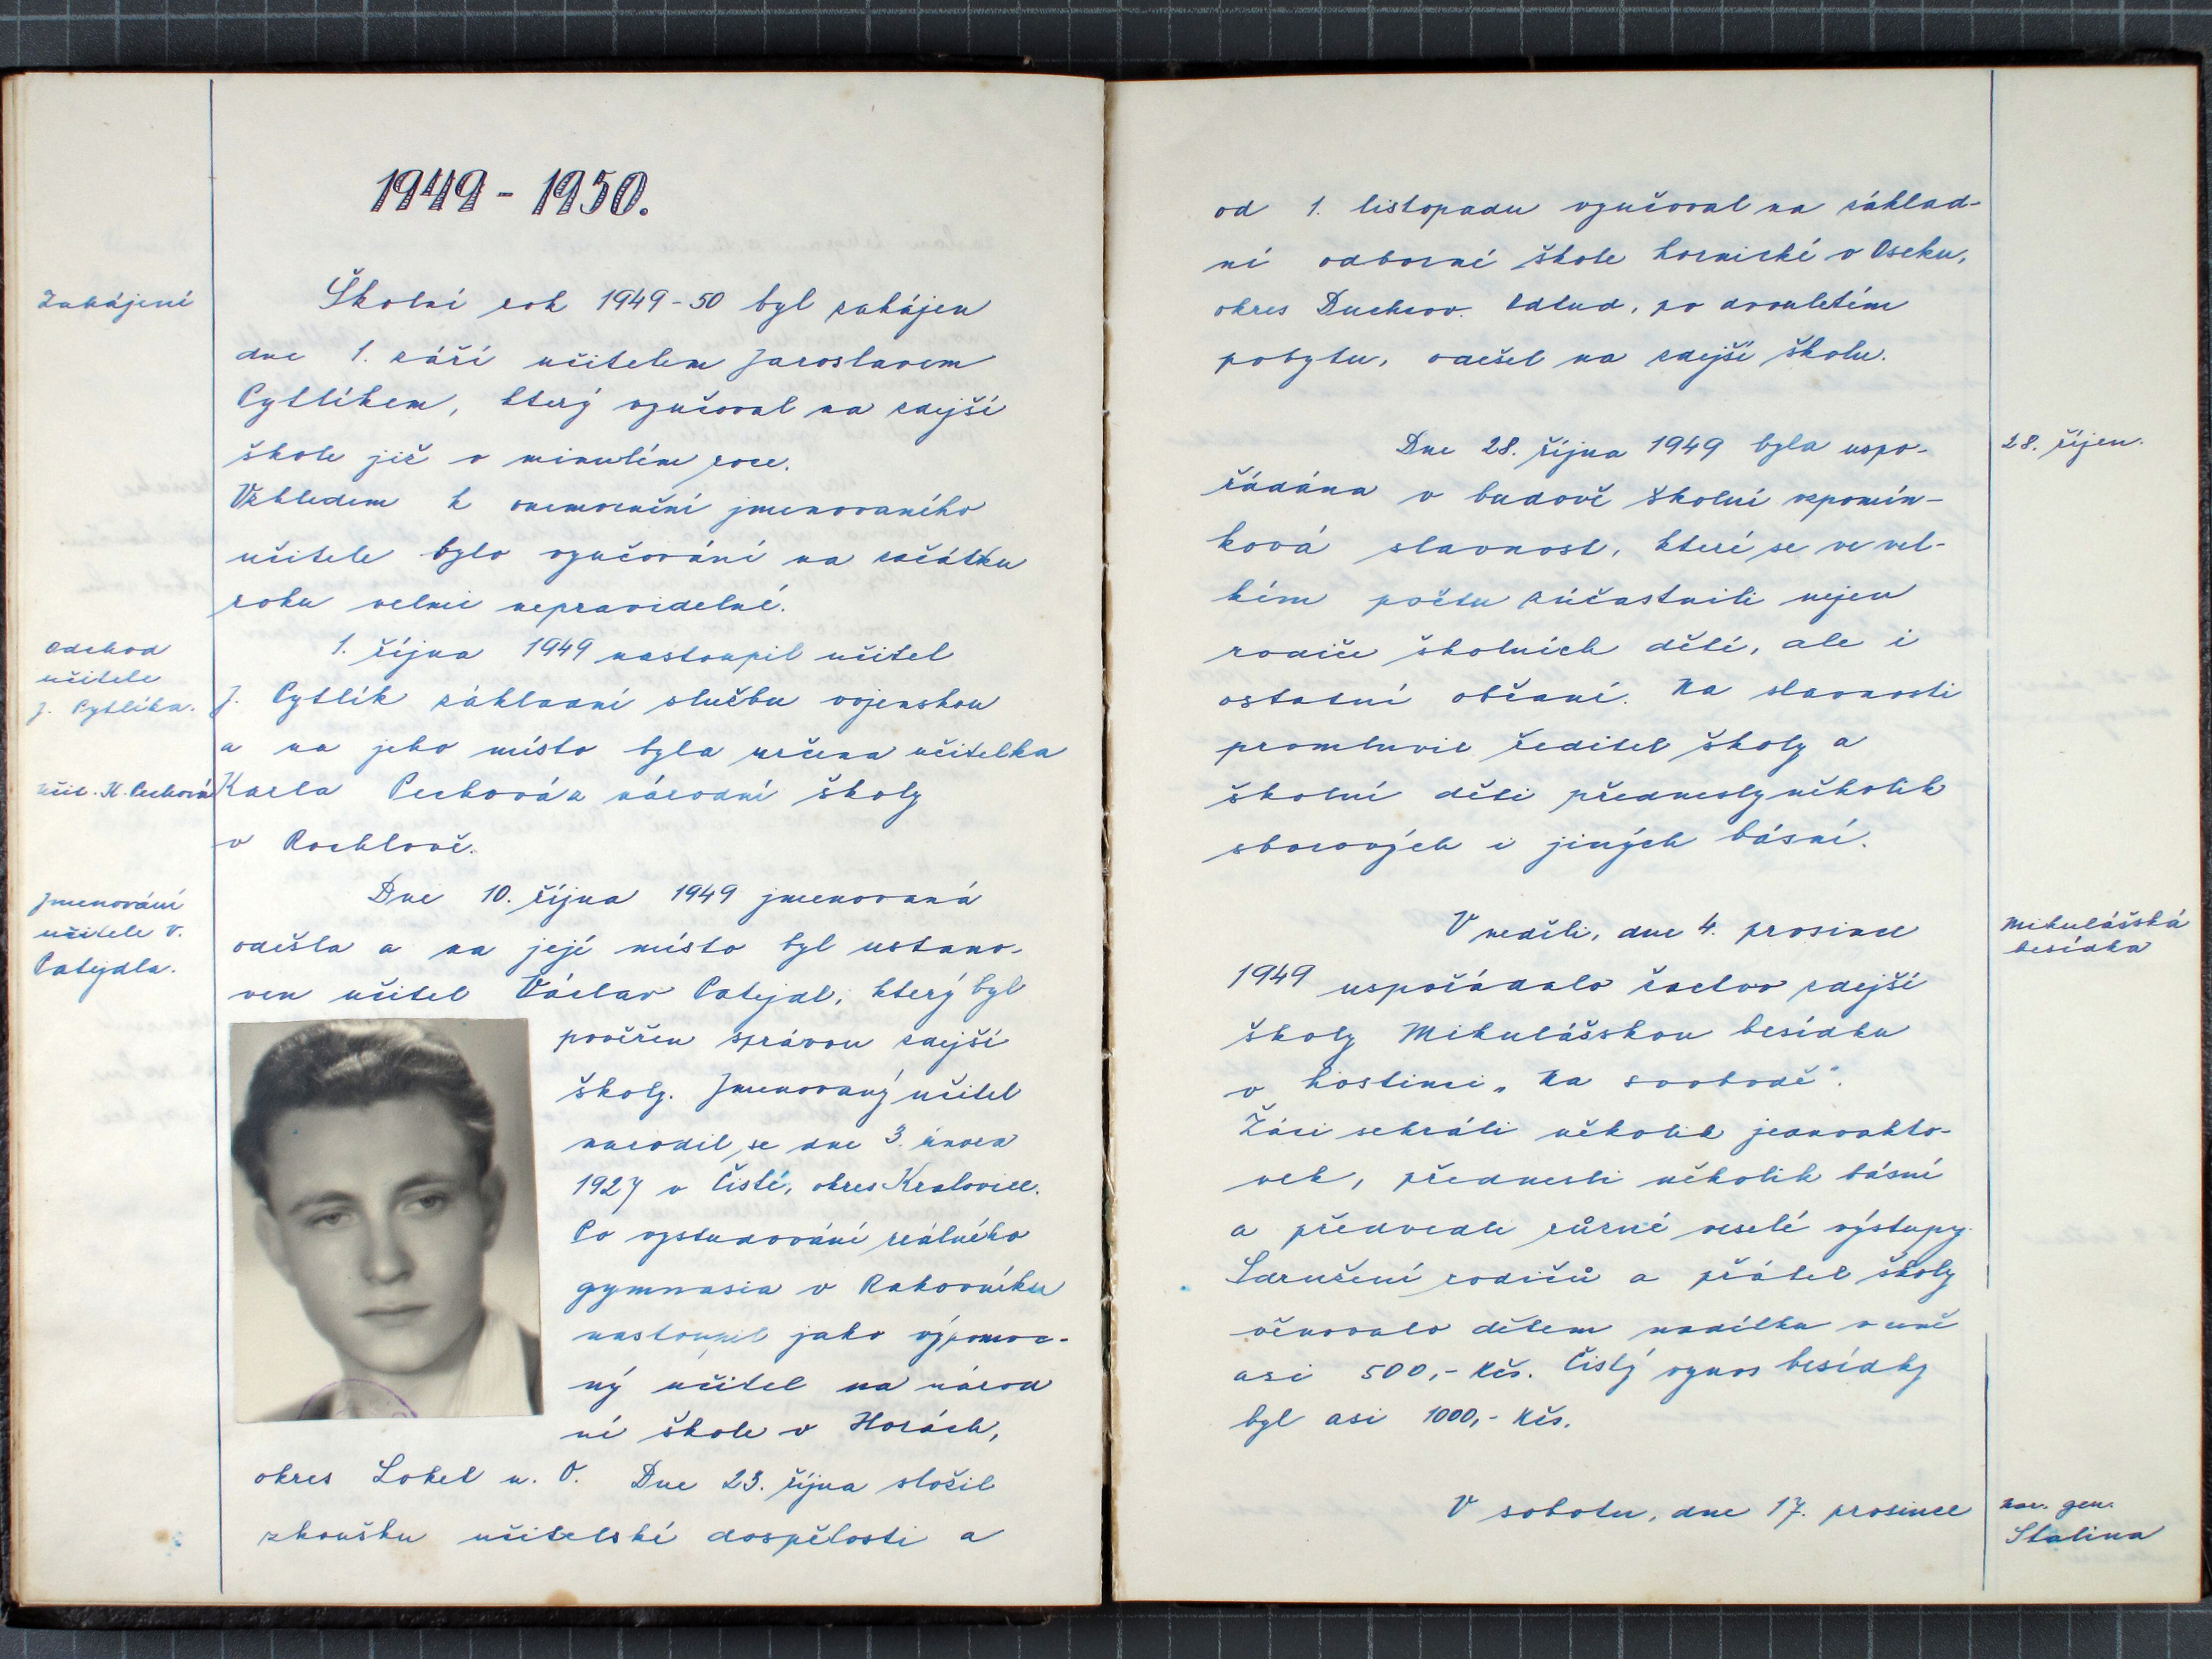 1949 - 1950.
Zahájení
Školní rok 1949-50 byl zahájen
dne 1. září učitelem Jaroslavem
Cytlíkem, který vyučoval na zdejší
škole již v minulém roce.
Vzhledem k onemocnění jmenovaného
učitele bylo vyučování na začátku
roku velmi nepravidelné.
Odchod
učitele
J. Cytlíka.
1. října 1949 nastoupil učitel
J. Cytlík základní službu vojenskou
a na jeho místo byla určena učitelka
učit. K. Pechová
Karla Pechová z národní školy
v Rochlově.
Jmenování
učitele V.
Patejdla.
Dne 10. října 1949 jmenovaná
odešla a na její místo byl ustano-
ven učitel Václav Patejdl, který byl
pověřen správou zdejší
školy. Jmenovaný učitel
narodil se dne 3. února
1927 v Čisté, okres Kralovice.
Po vystudování reálného
gymnasia v Rakovníku
nastoupil jako výpomoc-
ný učitel na národ
ní škole v Horách,
okres Loket n. O. Dne 23. října složil
zkoušku učitelské dospělosti a
od 1. listopadu vyučoval na základ-
ní odborné škole hornické v Oseku,
okres Duchcov. Odtud, po dvouletém
pobytu, odešel na zdejší školu.
28. říjen.
Dne 28. října 1949 byla uspo-
řádána v budově školní vzpomín-
ková slavnost, které se ve vel-
kém počtu zúčastnili nejen
rodiče školních dětí, ale i
ostatní občané. Na slavnosti
promluvil ředitel školy a
školní děti přednesly několik
sborových i jiných básní.
Mikulášská
besídka
V neděli, dne 4. prosince
1949 uspořádalo žactvo zdejší
školy Mikulášskou besídku
v hostinci „Na svobodě".
Žáci sehráli několik jednoakto-
vek, přednesli několik básní
a předvedli různé veselé výstupy.
Sdružení rodičů a přátel školy
věnovalo dětem nadílku v ceně
asi 500,- Kčs. Čistý výnos besídky
byl asi 1000,- Kčs.
nar. gen.
Stalina
V sobotu, dne 17. prosince